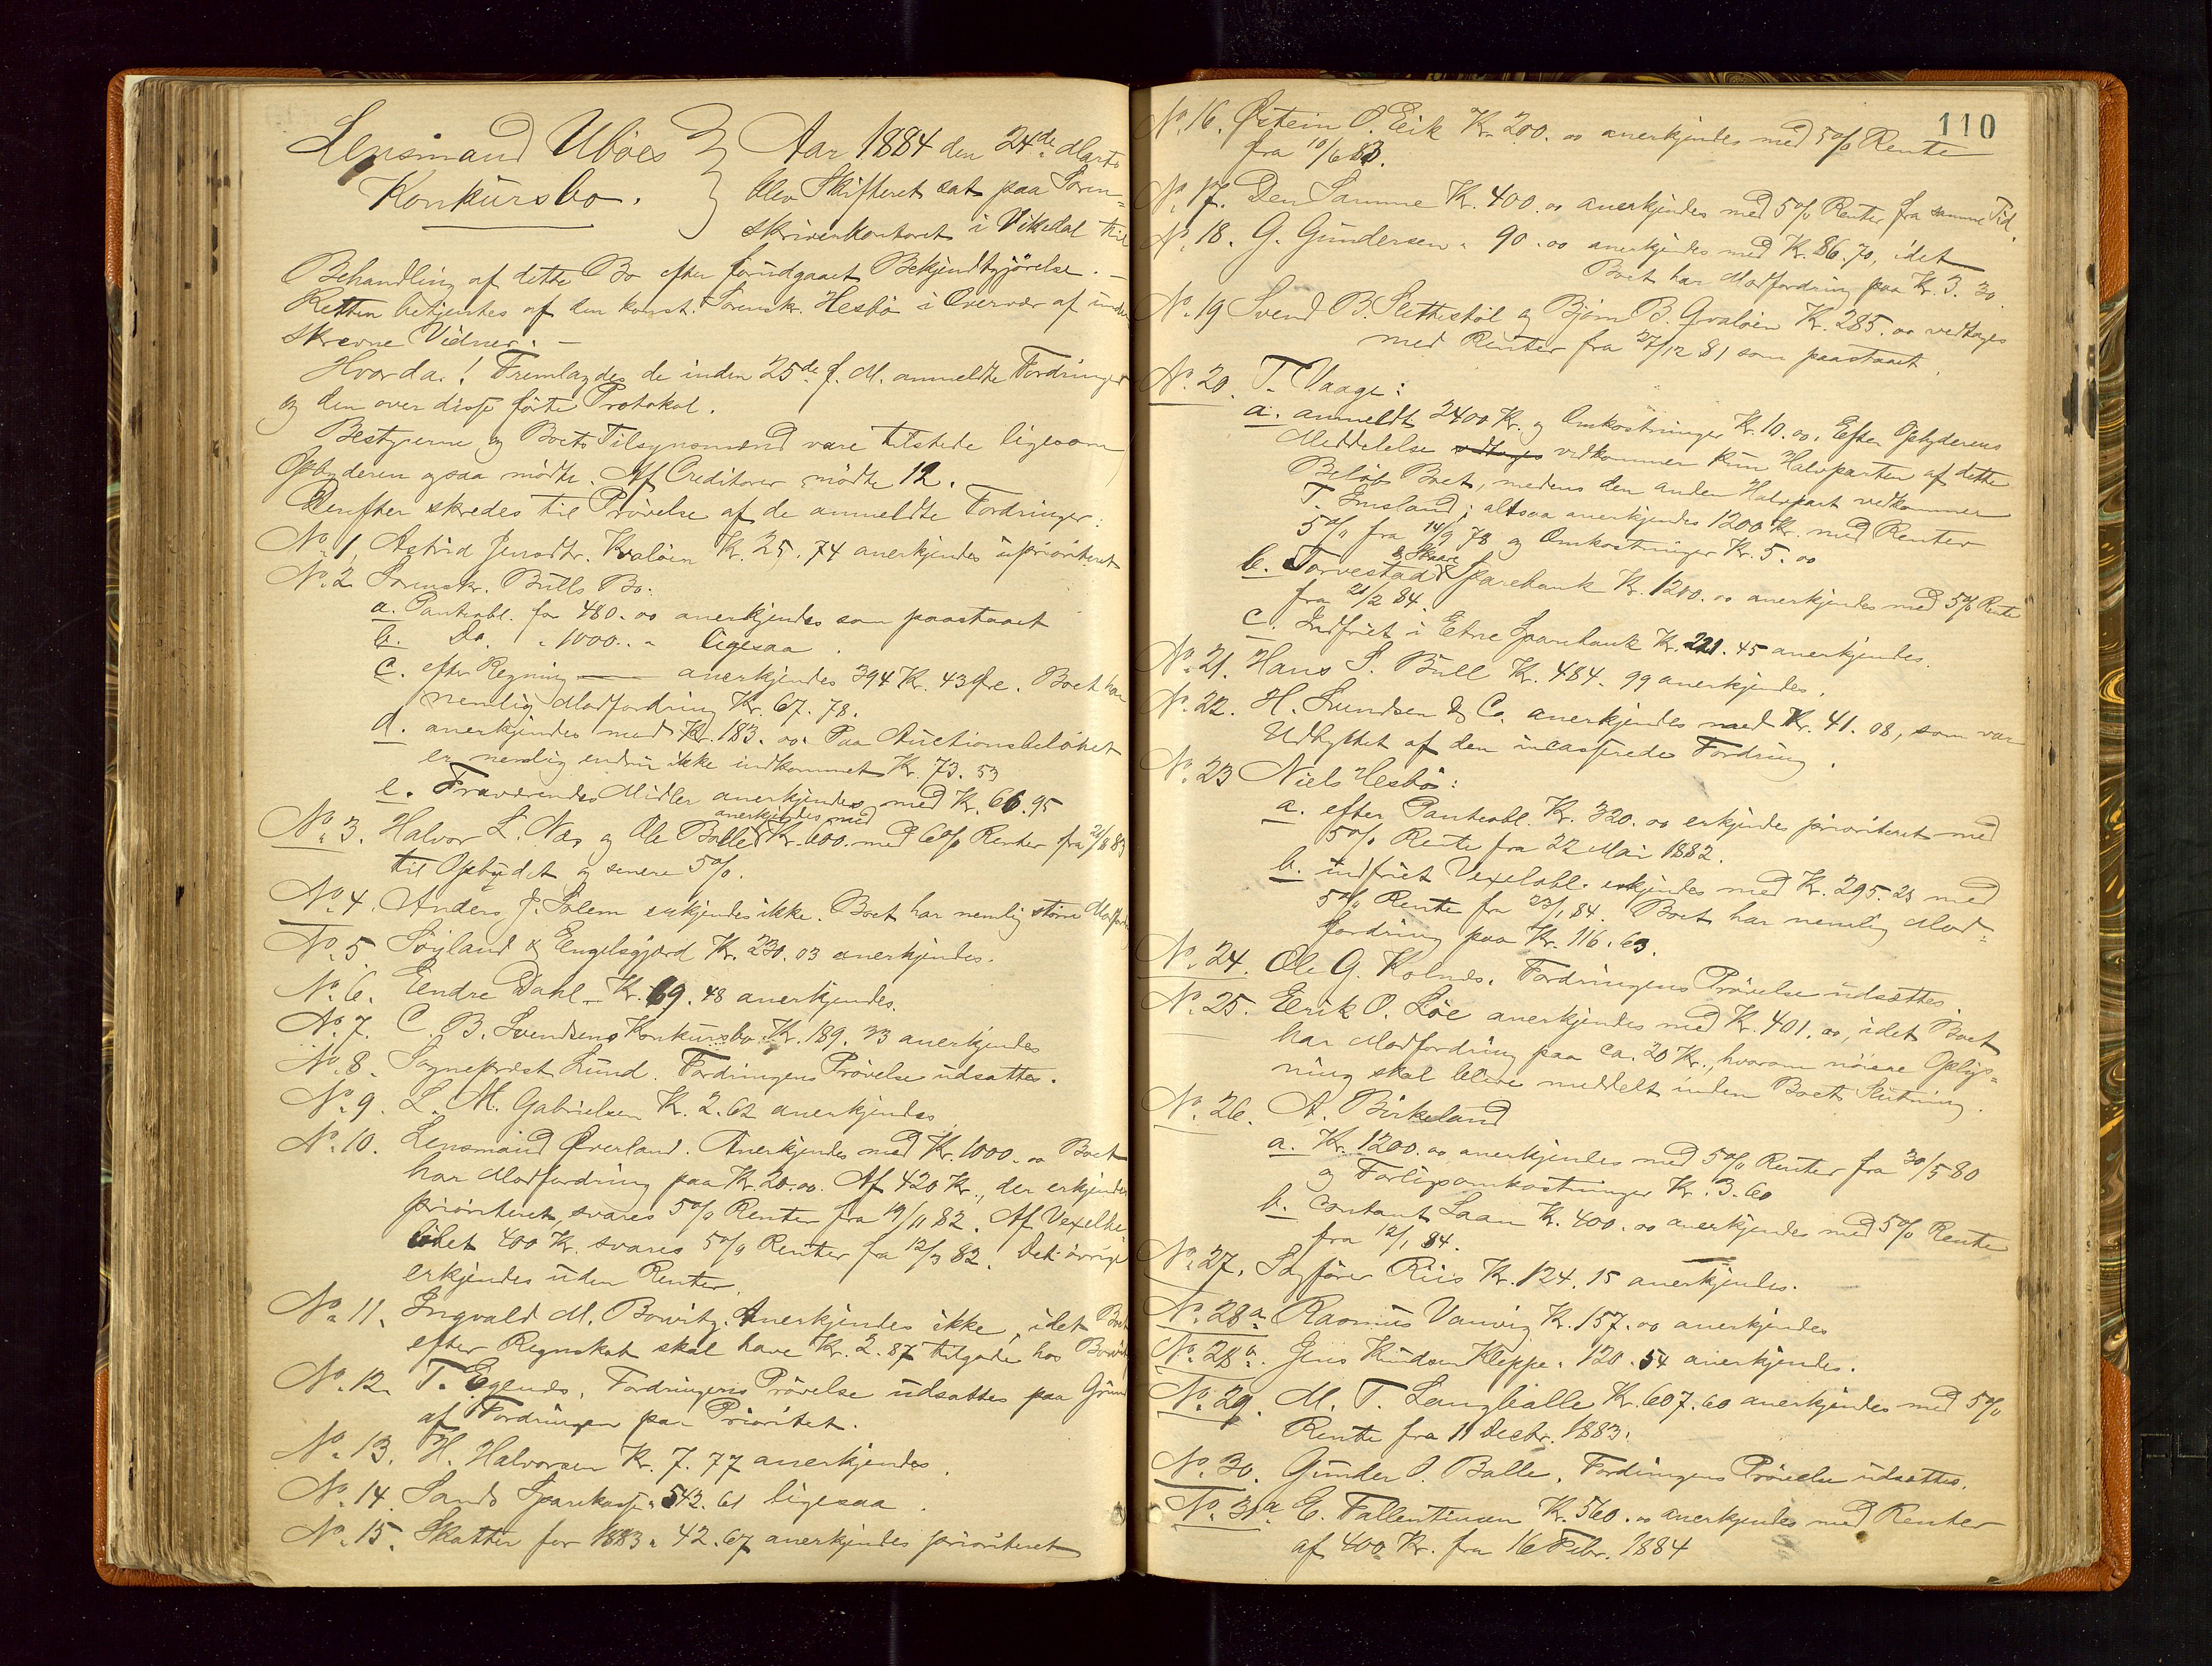 Lensmand Ubøes
Konkursbo.
Aar 1884 den 24de Marts
blev Skifteret sat paa Soren-
skriverkontoret i Vikedal til
Behandling af dette Bo efter forudgaaet Bekjendtgjörelse. –
Retten betjentes af den konst. Sorenskr. Hesbö i Overvær af under
skrevne Vidner. –
Hvorda! Fremlagdes de inden 25de f. M. anmeldte Fordringer
og den over disse förte Protokol.
Bestyrerne og Boets Tilsynsmænd vare tilstede ligesom
Opbyderen ogsaa mödte. Af Creditorer mödte 12.
Derefter skredes til Prövelse af de anmeldte Fordringer:
No. 1. Astrid Jensdtr. Kvaløen Kr. 25. 74 anerkjendes uprioriteret
No. 2 Sorenskr. Bulls Bo:
a. Panteobl. for 480. 00 anerkjendes som paastaaet
b. Do. " 1000. " ligesaa.
c. efter Regning anerkjendes 394 Kr. 43 Øre. Boet har
nemlig Modfordring Kr. 67. 78.
d. anerkjendes med Kr. 183. 00. Paa Auctionsbelöbet
er nemlig endnu ikke indkommet Kr. 73. 53
e. Fraværendes Midler anerkjendes med Kr. 66. 95
anerkjendes med
No. 3. Halvor L. Næs og Ole Balle Kr. 600. med 6% Renter fra 21/8 83
til Opbudet og senere 5%.
No. 4. Anders J. Solem erkjendes ikke. Boet har nemlig större Modford
No. 5. Söiland & Engelsgjærd Kr. 230. 03 anerkjendes.
No. 6. Endre Dahl Kr. 69. 48 anerkjendes.
No. 7. C. B. Svendsens Konkursbo Kr. 189. 33 anerkjendes
No. 8. Sogneprest Lund. Fordringens Prövelse udsattes.
No. 9. L. M. Gabrielsen Kr. 2. 62 anerkjendes
No. 10. Lensmand Øverland. Anerkjendes med Kr. 1000. 00 Boet
har Modfordring paa Kr. 20. 00. Af 420 Kr., der erkjendes
prioriteret, svares 5% Renter fra 19/11 82. Af Vexelbe-
löbet 400 Kr. svares 5% Renter fra 12/3 82. Det övrige
erkjendes uden Renter.
No. 11. Ingvald M. Bowitz. Anerkjendes ikke, idet Boet
efter Regnskab skal have Kr. 2. 87 tilgode hos Bowitz
No. 12. T. Egenes. Fordringens Prövelse udsattes paa Grund
af Fordringen paa Prioritet.
No. 13. H. Halvorsen Kr. 7. 77 anerkjendes.
No. 14. Sands Sparekasse " 543. 61 ligesaa.
No. 15. Skatter for 1883 " 42. 67 anerkjendes prioriteret
110
No. 16. Østein O. Eik Kr. 200. 00 anerkjendes med 5% Rente
fra 10/6 83.
No. 17. Den Samme Kr. 400. 00 anerkjendes med 5% Renter fra samme Tid.
No. 18. G. Gundersen " 90. 00 anerkjendes med Kr. 86. 70, idet
Boet har Modfordring paa Kr. 3. 30.
No. 19 Svend B. Slettestöl og Bjørn B. Qvaløen Kr. 285. 00 vedtages
med Renter fra 27/12 81 som paastaaet.
No. 20. T. Vaage:
a. anmeldt 2400 Kr. og Omkostninger Kr. 10. 00. Efter Opbyderens
Meddelelse vedtages vedkommer kun Halvparten af dette
Belöb Boet, medens den anden Halvpart vedkommer
T. Imsland; altsaa anerkjendes 1200 Kr. med Renter
5% fra 14/9 78 og Omkostninger Kr. 5. 00
& Skaare
b. Torvestad Sparebank Kr. 1200. 00 anerkjendes med 5% Rente
fra 21/2 84.
c. Indfriet i Etne Sparebank Kr. 221. 45 anerkjendes.
No. 21. Hans S. Bull Kr. 484. 99 anerkjendes.
No. 22. H. Svendsen & Co. anerkjendes med Kr. 41. 08, som var
Udbyttet af den incasserede Fordring.
No. 23 Niels Hesbö:
a. efter Panteobl. Kr. 320. 00 erkjendes prioriteret med
5% Rente fra 22 Mai 1882.
b. indfriet Vexelobl. erkjendes med Kr. 295. 25 med
5% Rente fra 23/1 84. Boet har nemlig Mod-
fordring paa Kr. 116. 63.
No. 24. Ole G. Kolnes. Fordringens Prövelse udsættes.
No. 25. Eirik O. Löe anerkjendes med Kr. 401. 00, idet Boet
har Modfordring paa ca. 20 Kr., hvorom nöiere Oplys-
ning skal blive meddelt inden Boets Slutning.
No. 26. A. Birkeland
a. Kr. 1200. 00 anerkjendes med 5% Renter fra 30/5 80
og Forligsomkostninger Kr. 3. 60
b. contant Laan Kr. 400. 00 anerkjendes med 5% Rente
fra 12/1 84.
No. 27. Sagförer Riis Kr. 124. 15 anerkjendes.
No. 28a. Rasmus Vanvig Kr. 157. 00 anerkjendes
No. 28b. Jens Knudsen Kleppe " 120. 54 anerkjendes.
No. 29. M. T. Langballe Kr. 607. 60 anerkjendes med 5%
Rente fra 11 Decbr. 1883.
No. 30. Gunder O. Balle. Fordringens Prövelse udsættes.
No. 31a E. Fallentinsen Kr. 560. 00 anerkjendes med Renter
af 400 Kr. fra 16 Febr. 1884